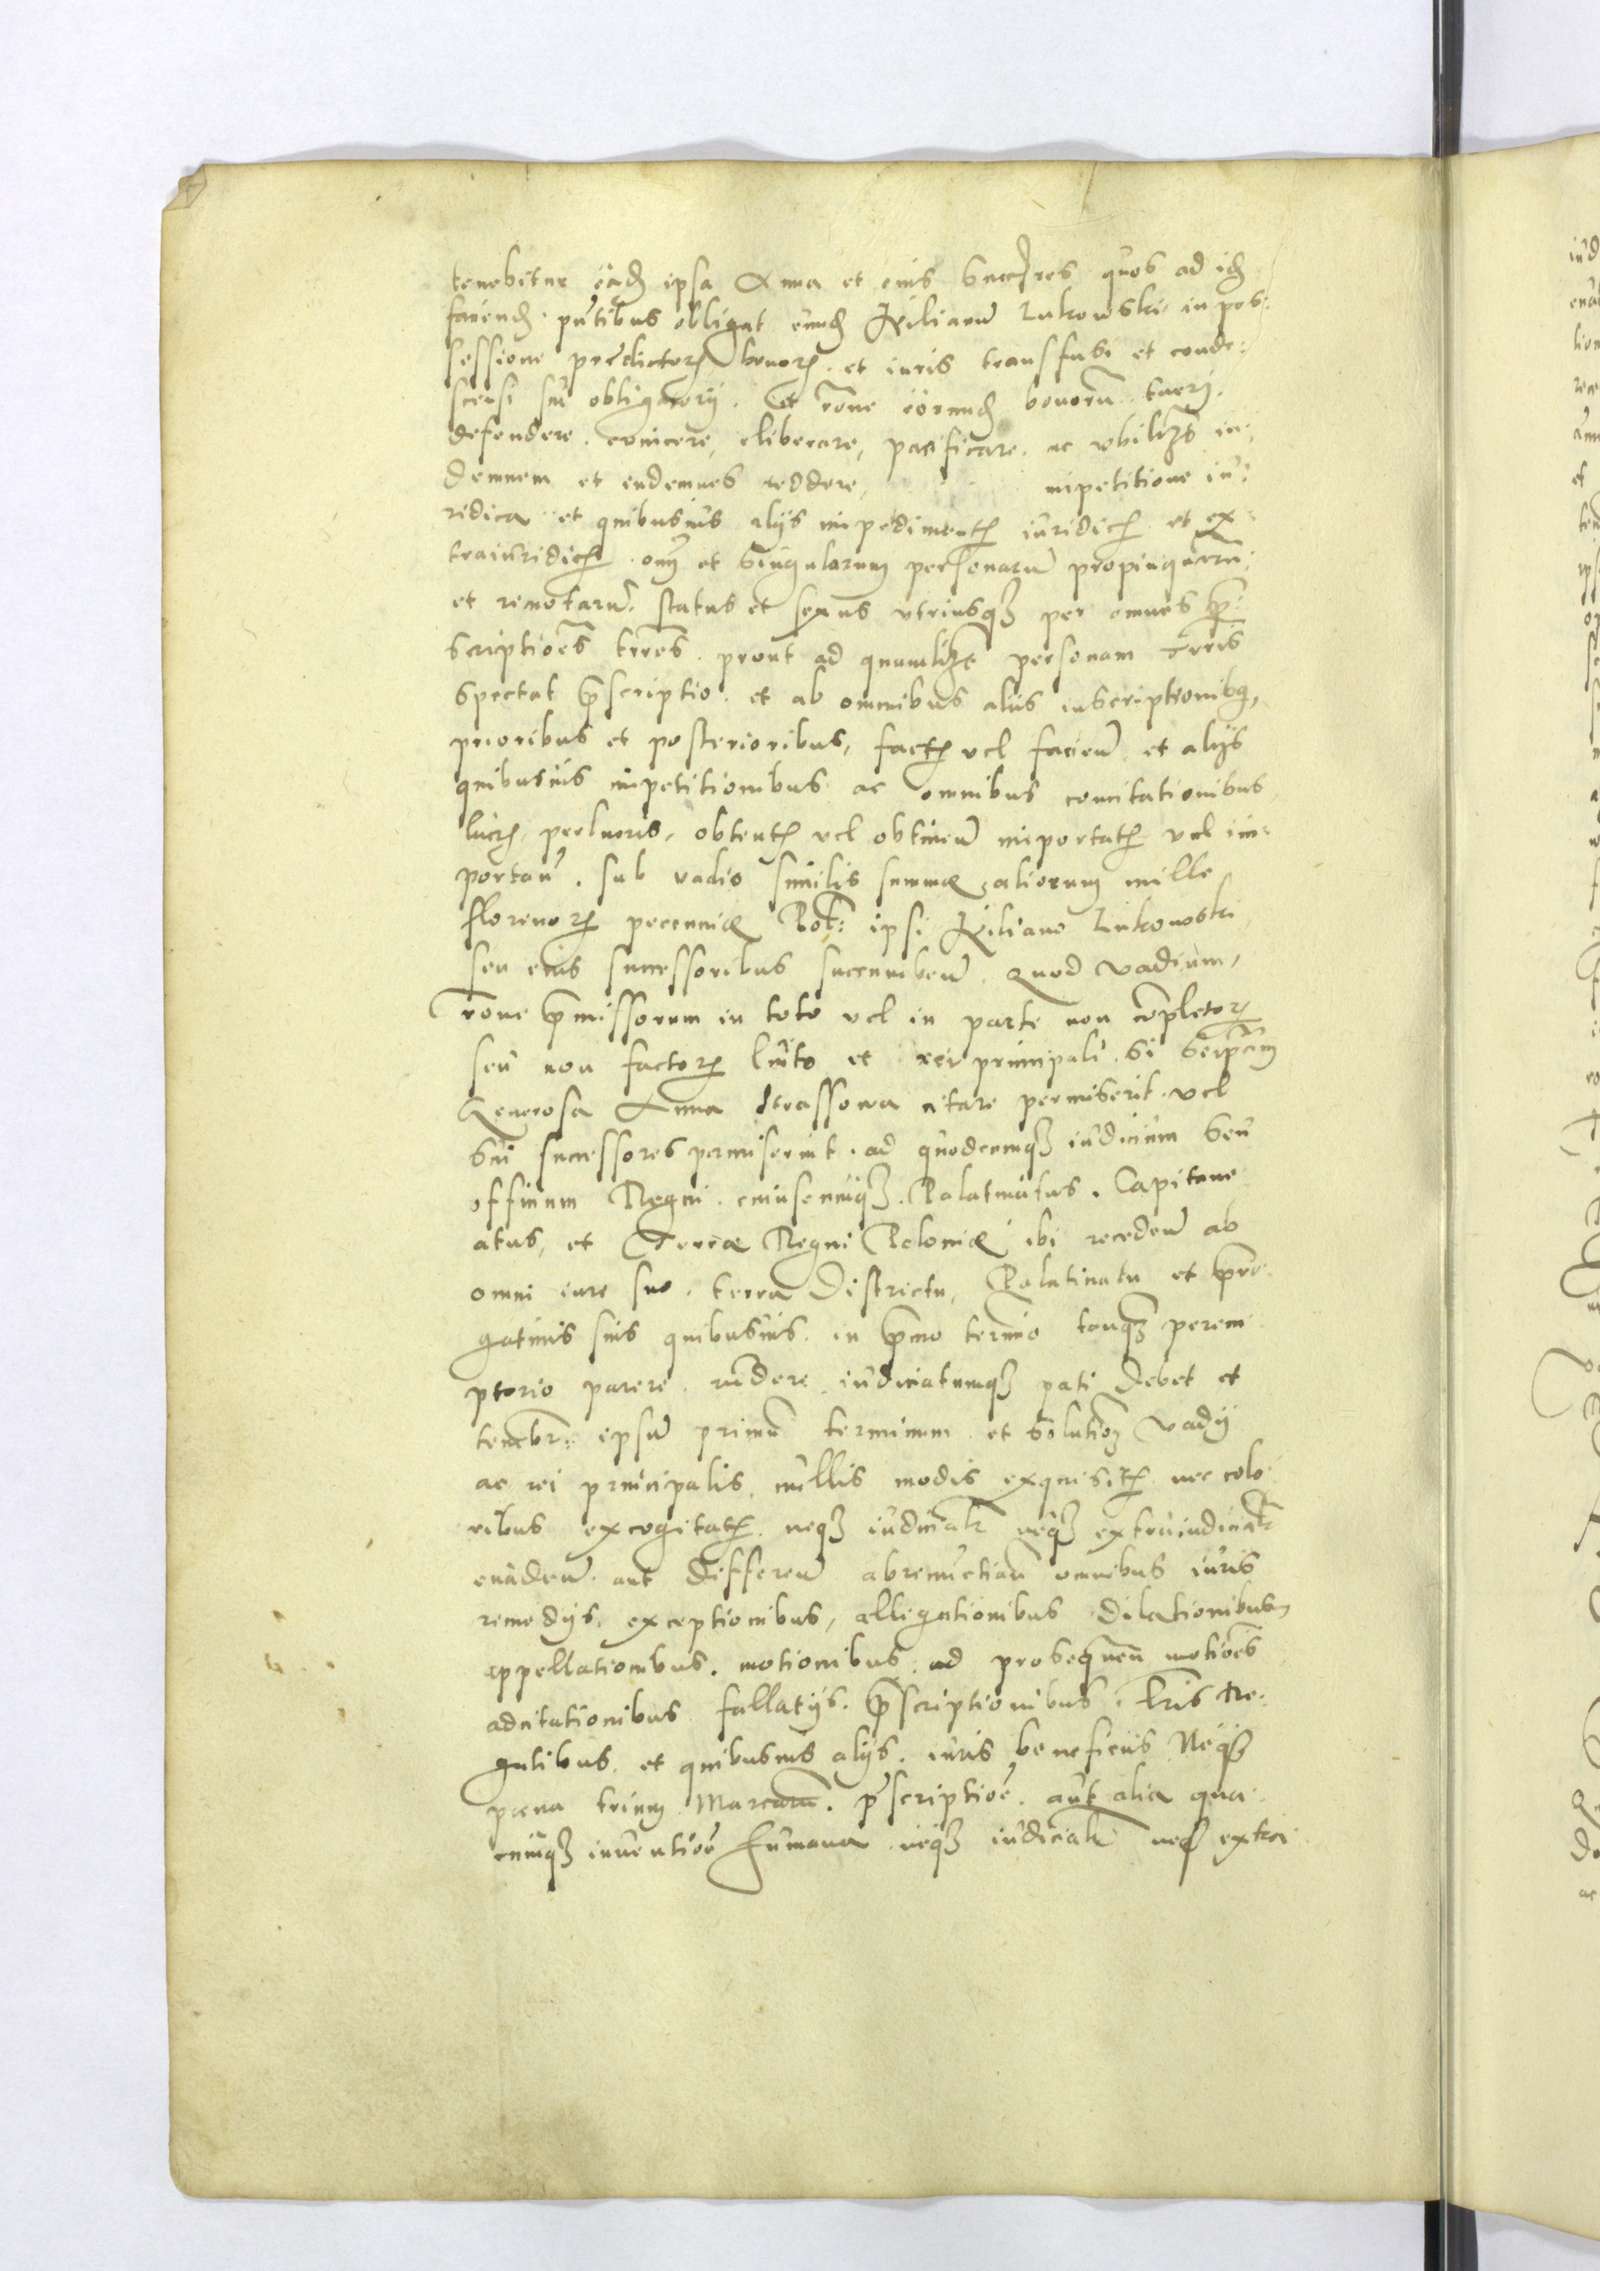 tenebitur eãd ipsa Anna et eius Succres quos ad id
faciend. pñtibus obligat eund Kilianũ Lukowski in pos:
sessione predictorꝝ bonorꝝ. et iuris transfusi et conde:
scensi sui obligatorij. Et rõne eorund bonorũ tueri.
defendere. euincere, eliberare, pacificare. ac vbilibꝫ in:
demnem et indemnes reddere, impetitione iu:
ridica et quibusuis alijs impedimentꝭ iuridicꝭ et ex:
traiuridicꝭ. oĩm et singularum personarũ propinquarũ.
et remotarũ. status et sexus vtriusqꝫ per omnes p̃:
scriptiões trres. prout ad quamlibꝫ personam trris
spectat p̃scriptio. et ab omnibus alijs inscriptionibꝫ,
prioribus et posterioribus, factꝭ vel faciend̃. et alijs
quibusuis impetitionibus ac omnibus concitationibus
lucrꝭ, perlucris, obtentꝭ vel obtinend̃ importatꝭ vel im:
portand̃. sub vadio similis summæ aliorum mille
florenorꝝ pecuniæ Pol: ipsi Kiliano Lukowski
seu eius successoribus succumbend̃. quod vadium,
rõne p̃missorum in toto vel in parte non cõpletorꝝ
seu non factorꝝ luito et rei principali. si seip̃am
Generosa Anna citare permiserit. vel
sui successores permiserint. ad quodcumqꝫ iudicium seu
officium Regni. cuiuscumqꝫ. Palatinatus. Capitane
atus, et Terræ Regni Poloniæ ibi recedend̃ ab
omni iure suo. terra districtu, Palatinatu et p̃ro:
gatiuis suis quibusuis. in p̃mo termio tanqꝫ perem
ptorio parere. rñdere. iudicatumqꝫ pati debet et
tenebr: ipsũ primũ terminum. et solutioẽ vadij
ac rei principalis. nullis modis exquisitꝭ. nec colo:
ribus excogitatꝭ. neqꝫ iudicialr neqꝫ extraiudicialr
euadend̃. aut differend̃ abrenuctiand̃ omnibus iuris
remedijs. exceptionibus, allegationibus dilationibus
appellationibus. motionibus. ad prosequend̃ motiões
adcitationibus fallatijs. p̃scriptionibus. Tris Re:
gulibus. et quibusuis alijs. iuris beneficiis Neqꝫ
pæna trium Marcarũ. p̃scriptiõe. aut alia qua
cumqꝫ inuentiõe humana. neqꝫ iudicialr neqꝫ extra